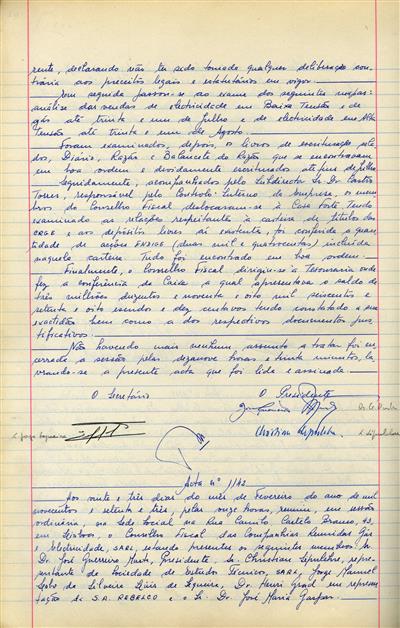 rente, declarando não ter sido tomada qualquer deliberação con-
trária aos preceitos legais e estatutários em vigor.
Em seguida passou-se ao exame dos seguintes mapas:
análise das vendas de electricidade em Baixa Tensão e de
gás até trinta e um de Julho e de electricidade em Alta
Tensão até trinta e um de Agosto.
Foram examinados, depois, os livros de escrituração sela-
dos, Diário, Razão e Balancete do Razão, que se encontravam
em boa ordem e devidamente escriturados até fins de Julho
Seguidamente, acompanhados pelo Subdirector Sr. Dr. Castro
Torres, responsável pelo Controle Interno da empresa, os mem-
bros do Conselho Fiscal deslocaram-se à Casa Forte. Tendo
examinado as relações respeitantes à carteira de títulos das
CRGE e aos depósitos livres aí existente, foi conferida a quan-
tidade de acções (duas mil e quatrocentas) incluída
naquela carteira. Tudo foi encontrado em boa ordem.
Finalmente, o Conselho Fiscal dirigiu-se à Tesouraria onde
fez a conferência da Caixa a qual apresentava o saldo de
três milhões duzentos e noventa e oito mil seiscentos e
setenta e oito escudos e dez centavos tendo constatado a sua
exactidão bem como a dos respectivos documentos jus-
tificativos.
Não havendo mais nenhum assunto a tratar foi en-
cerrada a sessão pelas dezanove horas e trinta minutos, la-
vrando-se a presente acta que foi lida e assinada.
O Secretário O Presidente
Christian Lepelutre
Acta nº 1142
Aos vinte e três dias do mês de Fevereiro do ano de mil
novecentos e setenta e três, pelas onze horas, reuniu, em sessão
ordinária, na sede social na Rua Camilo Castelo Branco, 43,
em Lisboa, o Conselho Fiscal das Companhias Reunidas Gás
e Electricidade, SARL, estando presentes os seguintes membros: Sr.
Dr. José Guerreiro Presidente, Sr. Christian repre-
sentante da Sociedade de Estudos Técnicos, SARL, Jorge Manuel
da Silveira de Siqueira, Dr. Henri em represen-
tação da S.A. e o Sr. Dr. José Maria Gaspar.